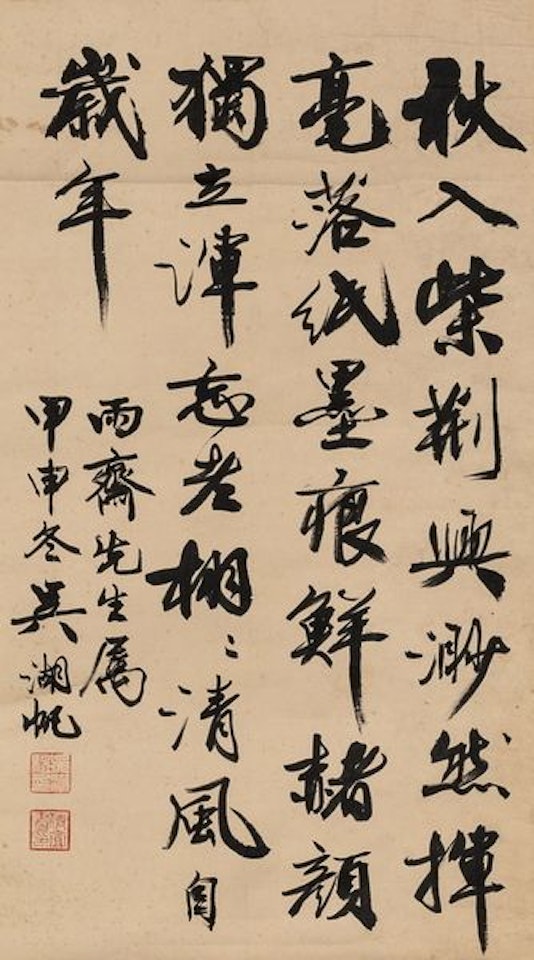 秋入柴荆興渺然揮
毫落紙墨痕鮮赭顏
獨立渾忘老栩〻清風自
歲年
雨齋先生属
甲申冬吴湖帆